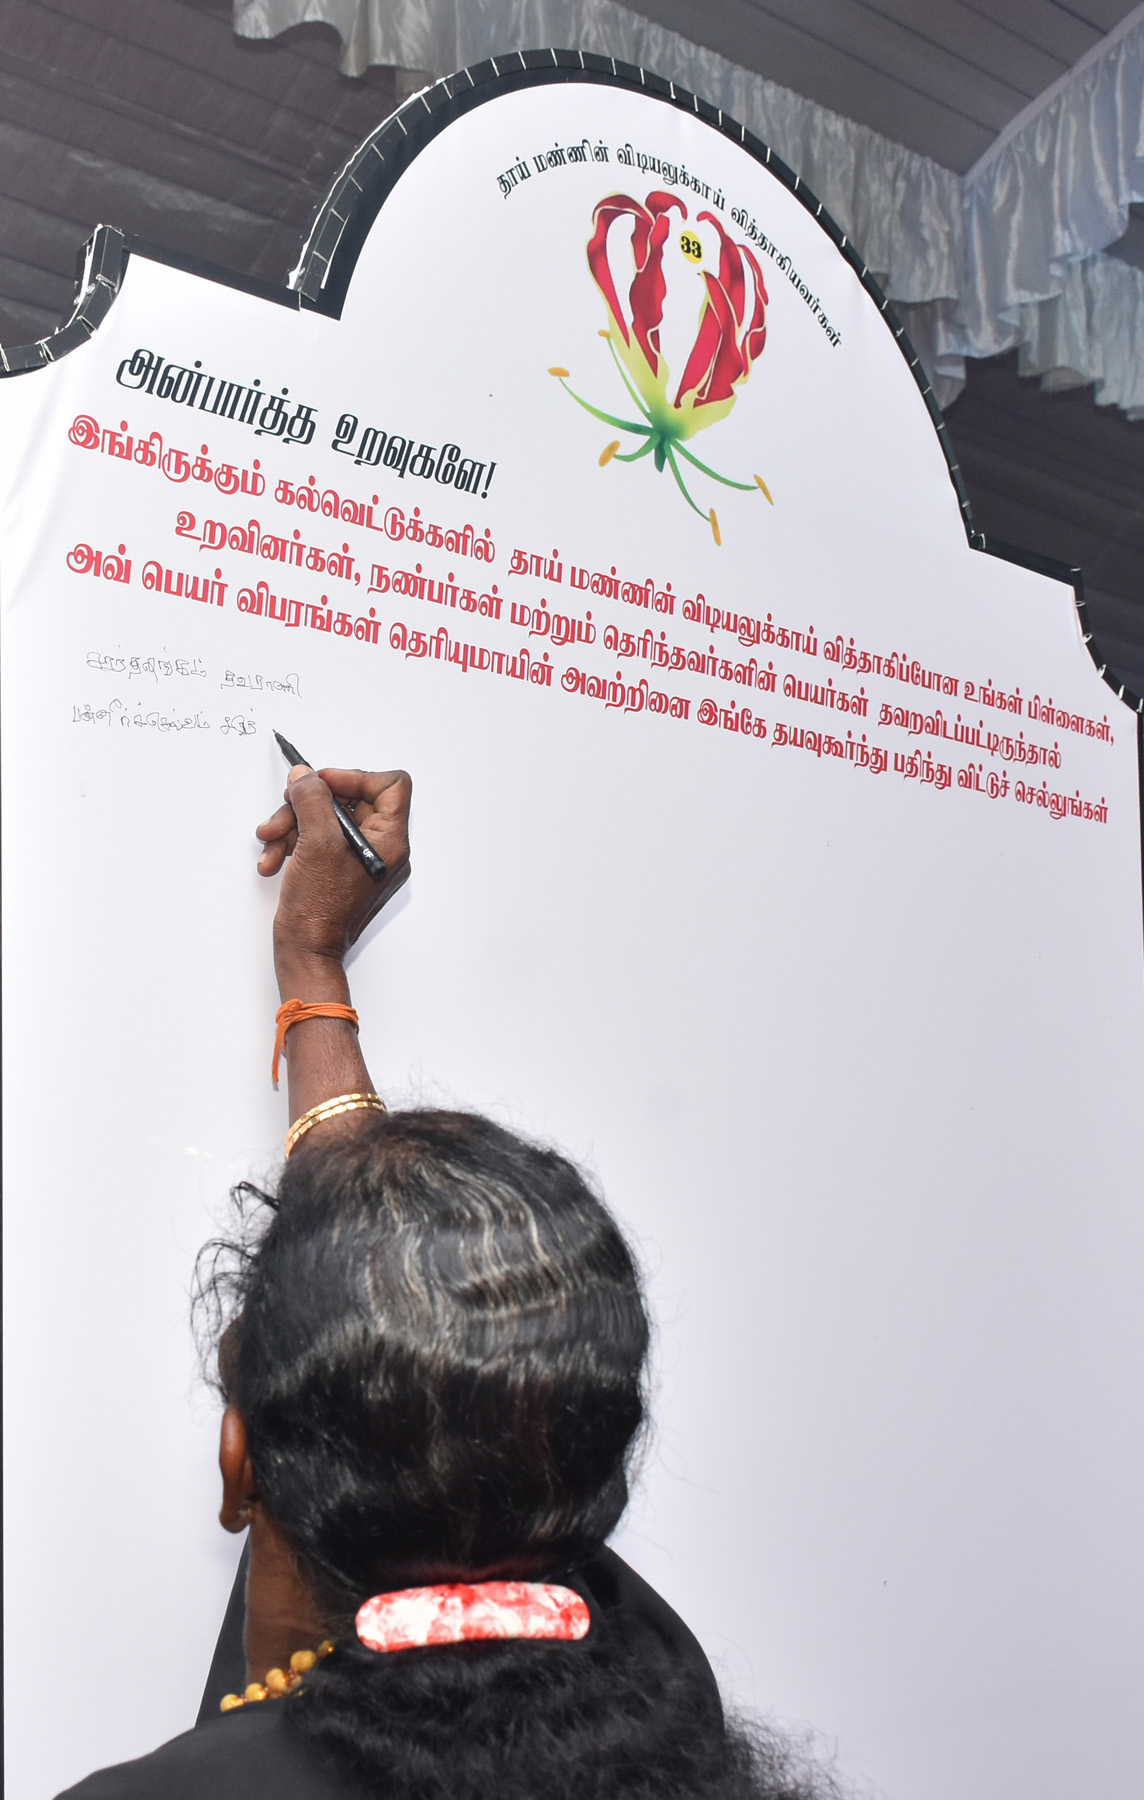 தாய் மண்ணின் விடியலுக்காய் வித்தாகியவர்கள்
33
அன்பார்த்த உறவுகளே!
இங்கிருக்கும் கல்வெட்டுக்களில் தாய் மண்ணின் விடியலுக்காய் வித்தாகிப்போன உங்கள் பிள்ளைகள்,
உறவினர்கள், நண்பர்கள் மற்றும் தெரிந்தவர்களின் பெயர்கள் தவறவிடப்பட்டிருந்தால்
அவ் பெயர் விபரங்கள் தெரியுமாயின் அவற்றினை இங்கே தயவுகூர்ந்து பதிந்து விட்டுச் செல்லுங்கள்
UF